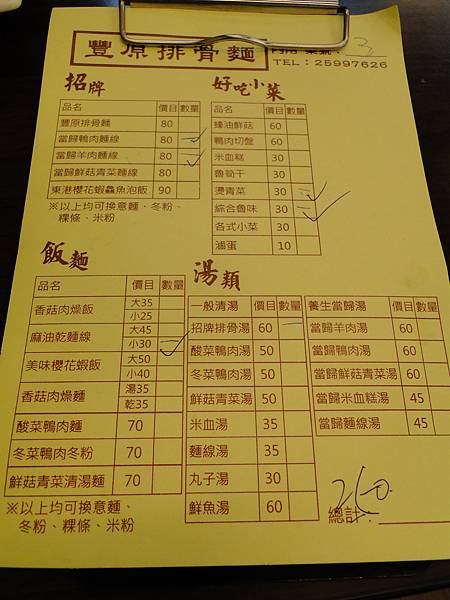 豐原排骨麵
3
TEL：25997626
招牌
品名 價目 數量
豐原排骨麵 80
當歸鴨肉麵線 80
當歸羊肉麵線 80
當歸鮮菇青菜麵線 80
東港櫻花蝦鱻魚泡飯 90
※以上均可換意麵、冬粉、
粿條、米粉
好吃小菜
品名 價目 數量
蠔油鮮菇 60
鴨肉切盤 60
米血糕 30
魯筍干 30
燙青菜 30
綜合魯味 30
各式小菜 30
滷蛋 10
飯麵
品名 價目 數量
香菇肉燥飯 大35 小25
麻油乾麵線 大45 小30
美味櫻花蝦飯 大50 小40
香菇肉燥麵 湯35 乾35
酸菜鴨肉麵 70
冬菜鴨肉冬粉 70
鮮菇青菜清湯麵 70
※以上均可換意麵、
冬粉、粿條、米粉
湯類
一般清湯 價目 數量
招牌排骨湯 60 一
酸菜鴨肉湯 50
冬菜鴨肉湯 50
鮮菇青菜湯 50
米血湯 35
麵線湯 35
丸子湯 30
鮮魚湯 60
養生當歸湯 價目 數量
當歸羊肉湯 60
當歸鴨肉湯 60
當歸鮮菇青菜湯 60
當歸米血糕湯 45
當歸麵線湯 45
260
總計：